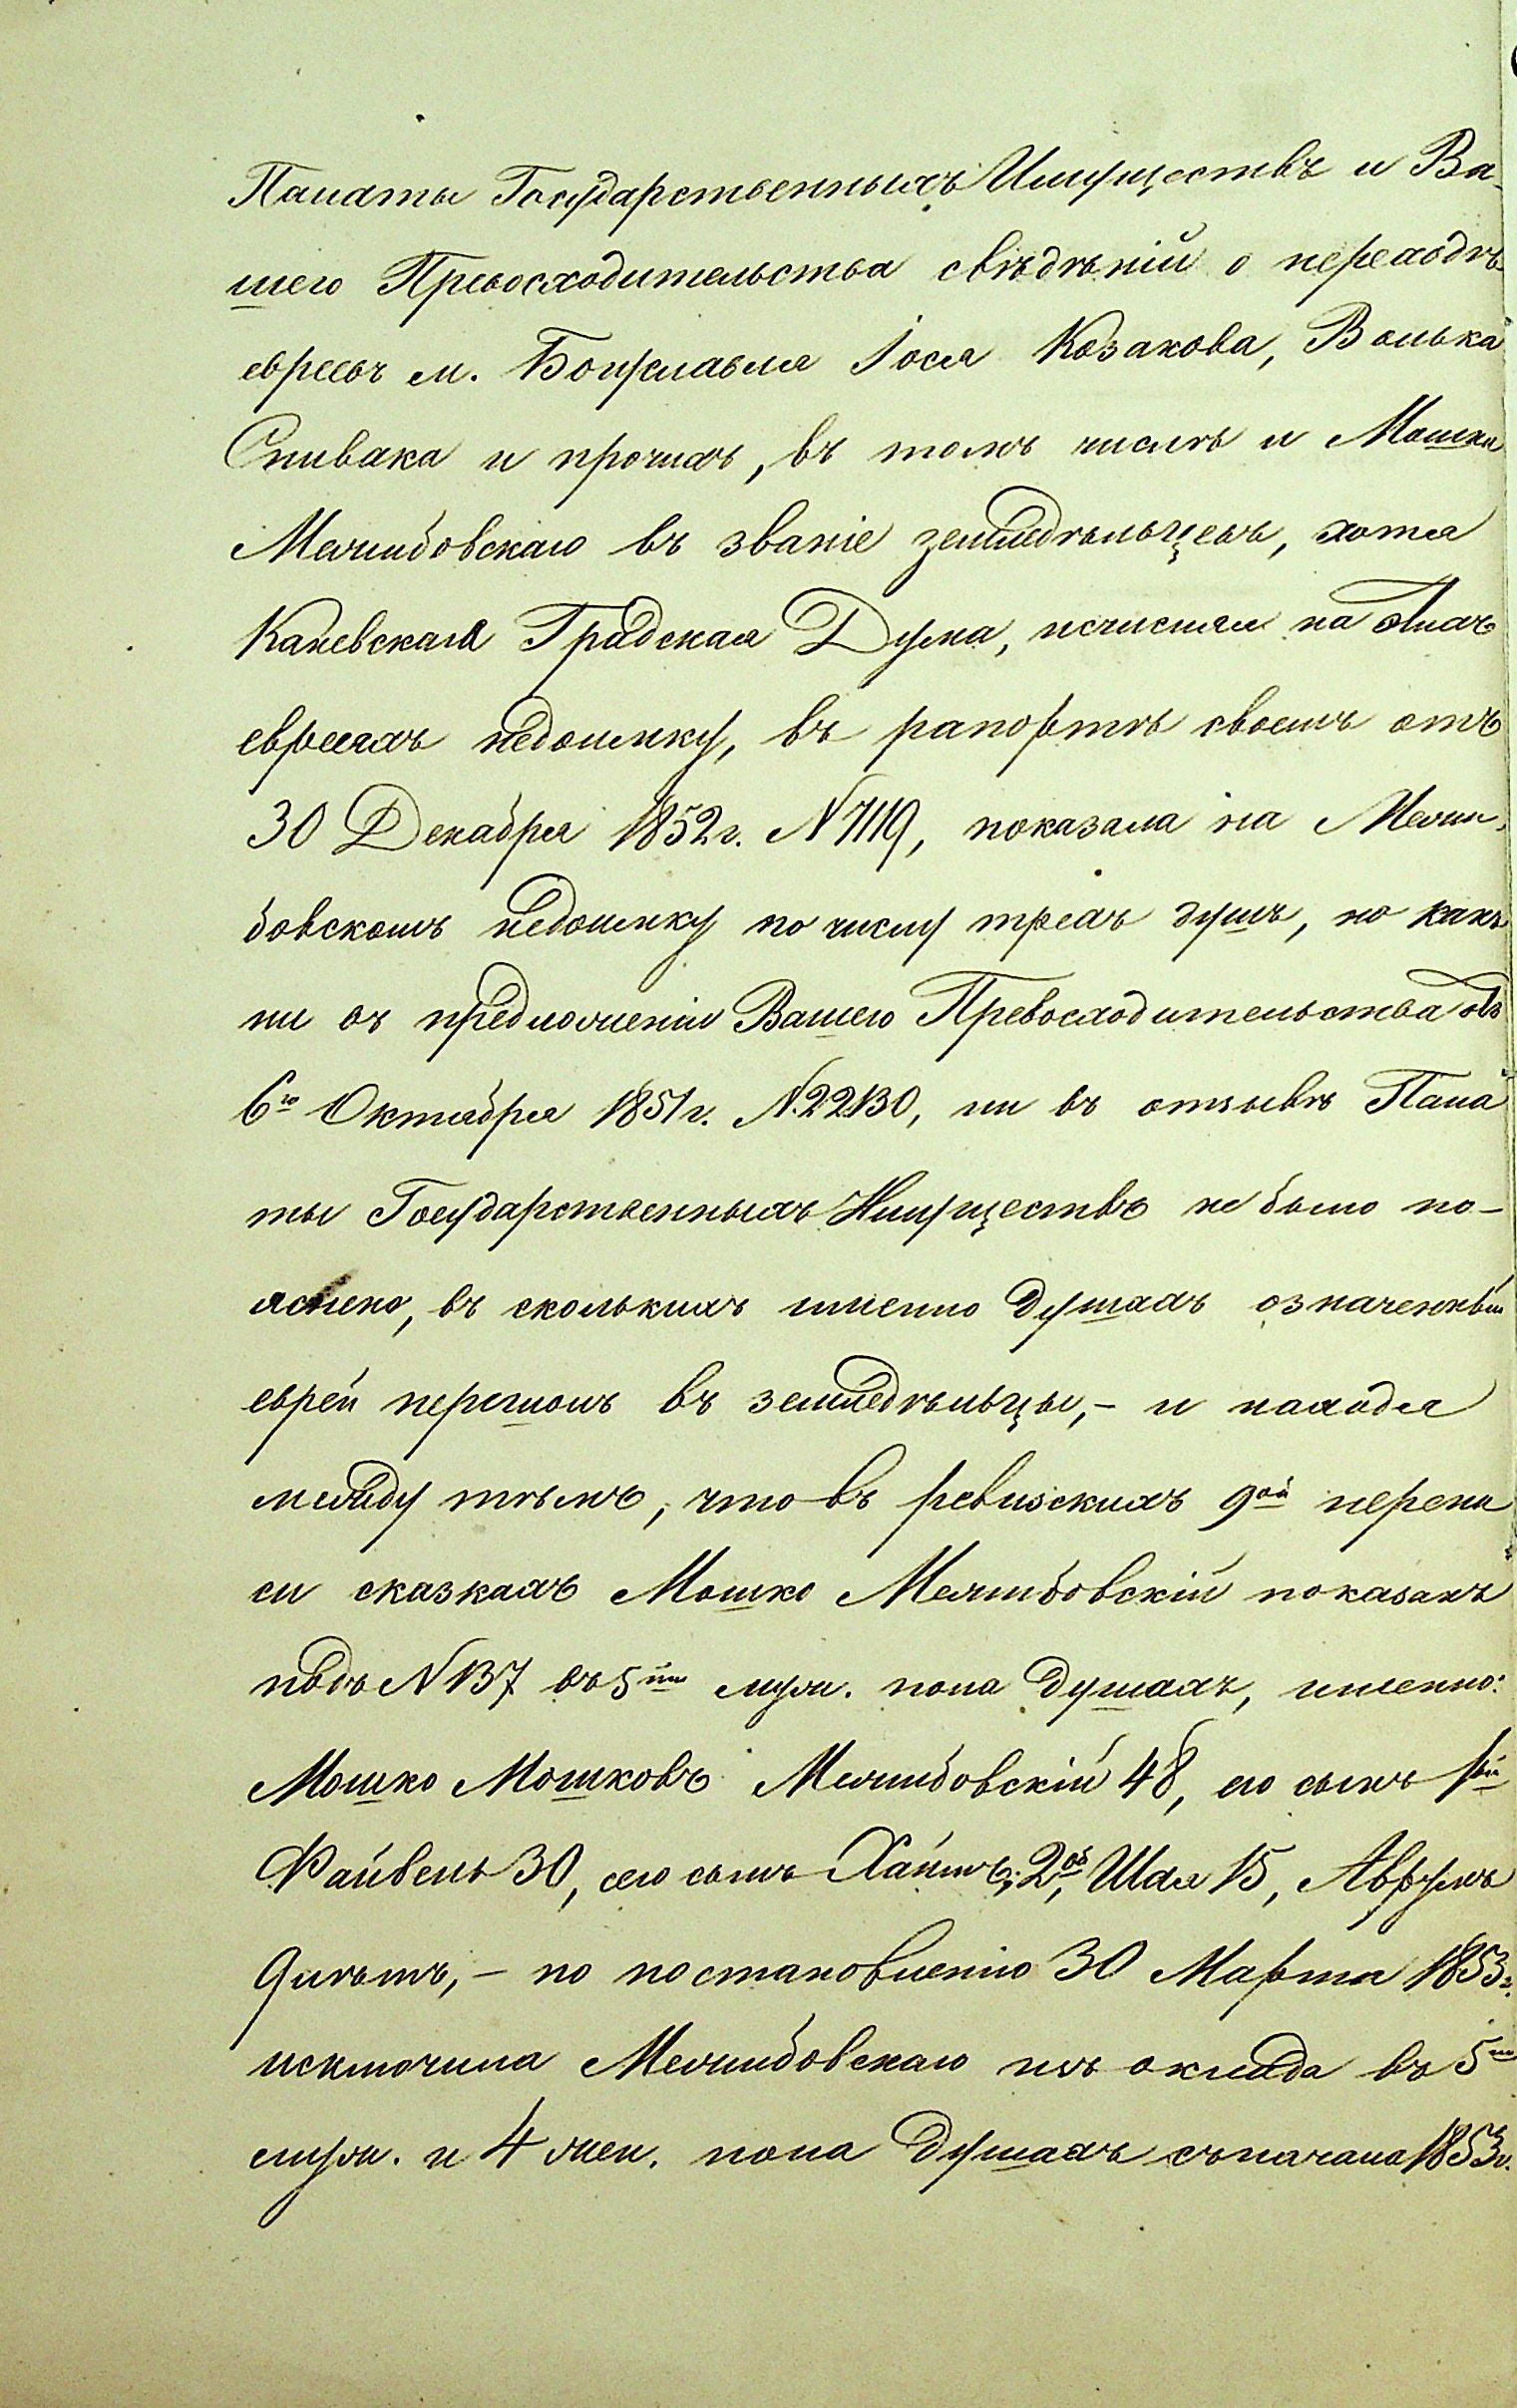 Палаты Государственныхъ Имуществъ и Ва-
шего Превосходительства свѣдѣній о переходѣ
евреевъ м. Богуславля Іося Козакова, Волька
Спивака и прочихъ, въ томъ числѣ и Мошка
Межибовскаго въ званіе земледѣльцевъ, хотя
Каневская Градская Дума, исчисляя на этихъ
евреяхъ недоимку, въ рапортѣ своемъ отъ
30 Декабря 1852 г. N 7119, показала на Межи-
бовскомъ недоимку по числу трехъ душъ, но какъ
ни въ предложеніи Вашего Превосходительства отъ
6го Октября 1851 г. N. 22130, ни въ отзывѣ Пала
ты Государственныхъ Имуществъ не было по-
яснено, въ сколькихъ именно душахъ означенный
еврей перешолъ въ земледѣльцы, – и находя
между тѣмъ, что въ ревизскихъ 9ой перепи
си сказкахъ Мошко Межибовскій показанъ
подъ N 137 въ 5ти муж. пола душахъ, именно:
Мошко Мошковъ Межибовскій 48, его сынъ 1й
Файвель 30, сего сынъ Хаимъ, 2ой, Шая 15, Аврумъ
9 лѣтъ, – по постановленію 30 Марта 1853 г.
исключила Межибовскаго изъ оклада въ 5ти
муж. и 4 жен. пола душахъ съ начала 1853 г.